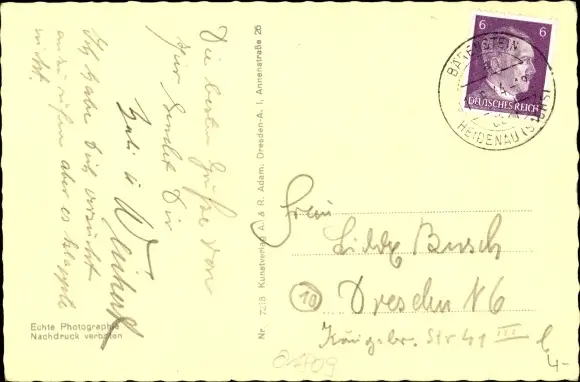 Die besten Grüße von
hier sendet Dir
Ich habe Dich versucht
anzurufen aber es klappte
nicht.
Echte Photographie
Nachdruck verboten
Nr. 7218 Kunstverlag A. & R. Adam, Dresden-A. 1, Annenstraße 25
6 6
DEUTSCHES REICH
BÄRENSTEIN
HEIDENAU (SACHS)
Frau
Busch
10 Dresden N 6
Königsbr. Str 49 III
4-